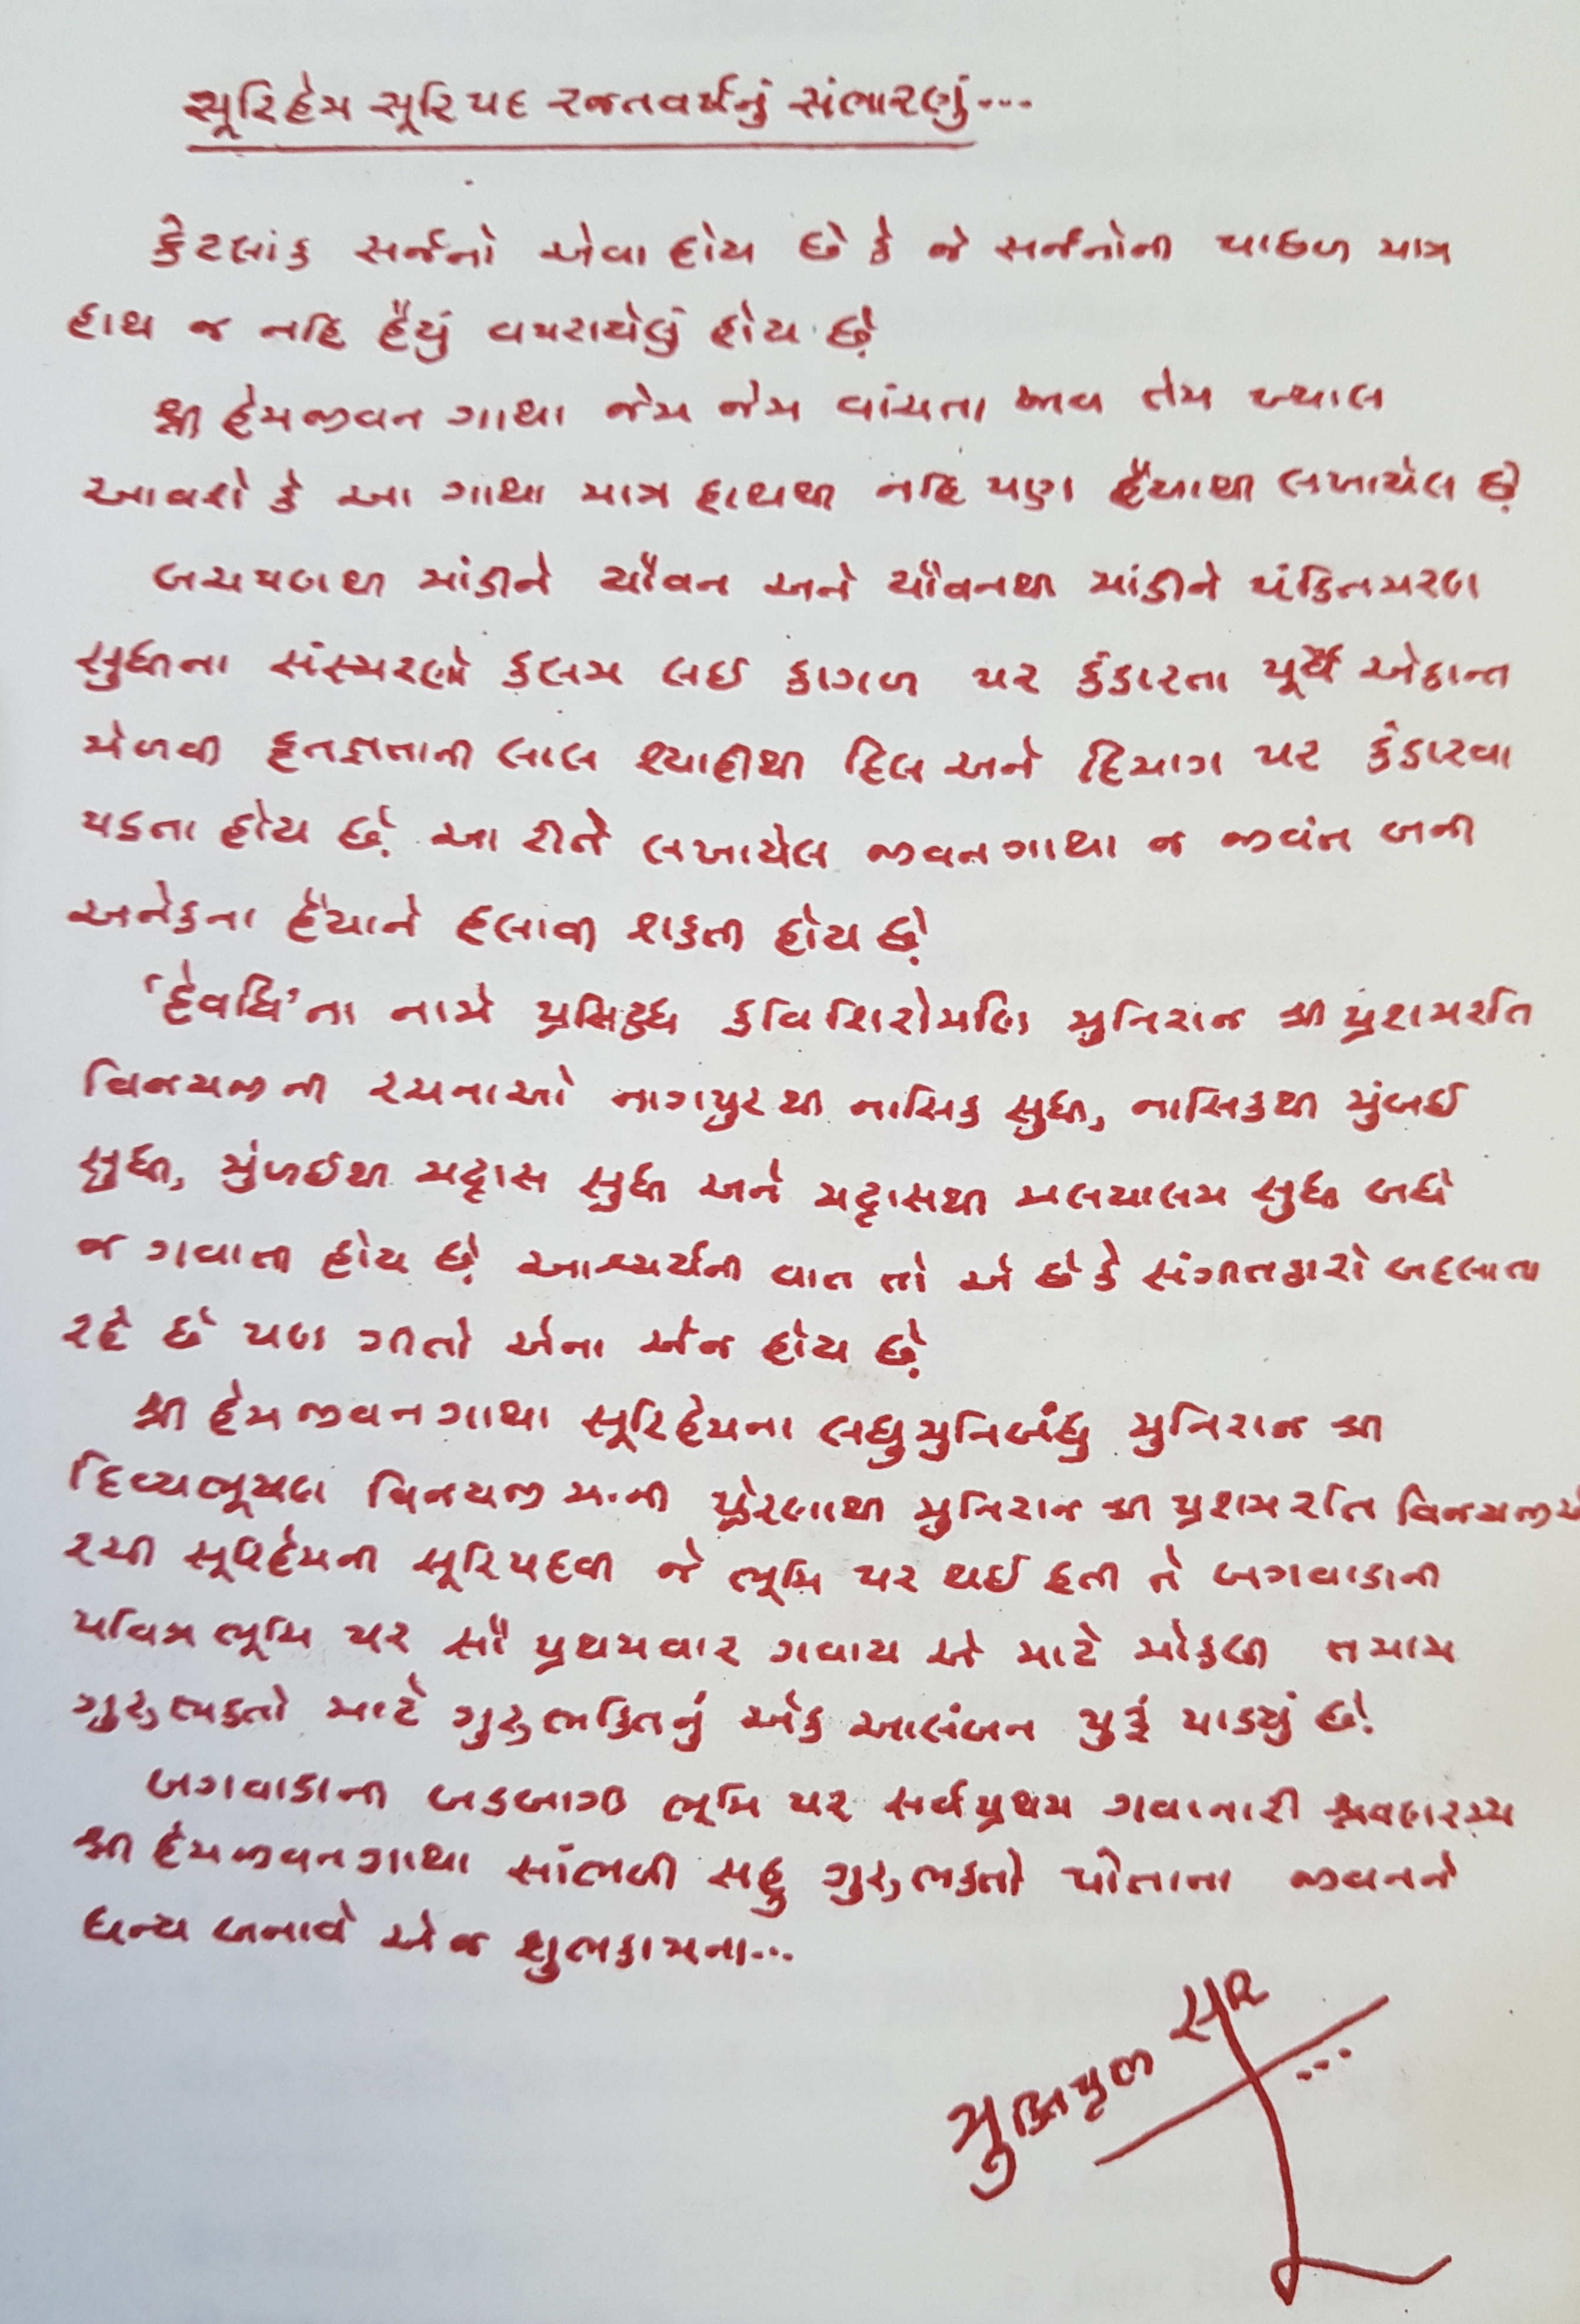 સૂરિહેમ સૂરિપદ રજતવર્ષનું સંભારણું...
કેટલાંક સર્જનો એવા હોય છે કે જે સર્જનોની પાછળ માત્ર
હાથ જ નહિ હૈયું વપરાયેલું હોય છે.
શ્રી હેમજીવન ગાથા જેમ જેમ વાંચતા જાવ તેમ ખ્યાલ
આવશે કે આ ગાથા માત્ર હાથથી નહિ પણ હૈયાથી લખાયેલ છે.
બચપણથી માંડીને યૌવન અને યૌવનથી માંડીને પંડિતમરણ
સુધીના સંસ્મરણો કલમ લઈ કાગળ પર કંડારતા પૂર્વે એકાન્ત
મેળવી કૃતજ્ઞતાની લાલ શ્યાહીથી દિલ અને દિમાગ પર કંડારવા
પડતા હોય છે. આ રીતે લખાયેલ જીવનગાથા જ જીવંત બની
અનેકના હૈયાને હલાવી શકતી હોય છે.
'દેવર્ધિ'ના નામે પ્રસિદ્ધ કવિ શિરોમણિ મુનિરાજ શ્રી પ્રશમરતિ
વિજયજીની રચનાઓ નાગપુરથી નાસિક સુધી, નાસિકથી મુંબઈ
સુધી, મુંબઈથી મદ્રાસ સુધી અને મદ્રાસથી મલયાલમ સુધી બધે
જ ગવાતી હોય છે. આશ્ચર્યની વાત તો એ છે કે સંગીતકારો બદલાતા
રહે છે પણ ગીતો એના એજ હોય છે.
શ્રી હેમજીવનગાથા સૂરિહેમના લઘુમુનિબંધુ મુનિરાજ શ્રી
દિવ્યભૂષણ વિજયજી મ.ની પ્રેરણાથી મુનિરાજ શ્રી પ્રશમરતિ વિજયજીએ
રચી સૂરિહેમની સૂરિપદવી જે ભૂમિ પર થઈ હતી તે બગવાડાની
પવિત્ર ભૂમિ પર સૌ પ્રથમવાર ગવાય એ માટે મોકલી તમામ
ગુરુભક્તો માટે ગુરુભક્તિનું એક આલંબન પુરૂં પાડ્યું છે.
બગવાડાની બડભાગી ભૂમિ પર સર્વપ્રથમ ગવાનારી શ્રવણરમ્ય
શ્રી હેમજીવનગાથા સાંભળી સહુ ગુરુભક્તો પોતાના જીવનને
ધન્ય બનાવે એજ શુભકામના...